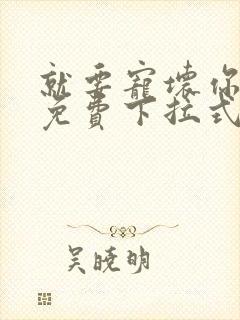 就要寵壞你
免費下拉式
吴曉明